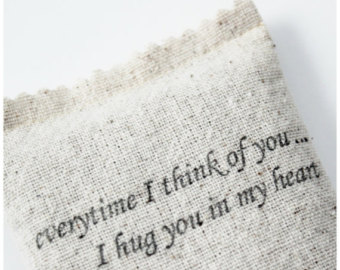 everytime I think of you...
I hug you in my heart